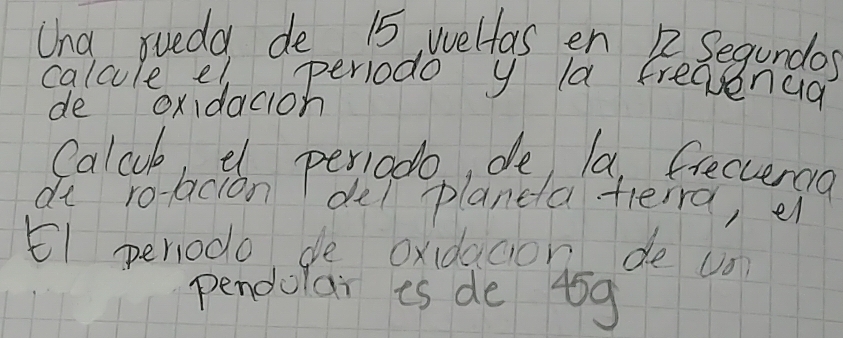 Una rueda de 15 vueltas en 12 segundos
calcule el periodo y la frecuencia
de oxidacion
Calcule el periodo, de la frecuencia
de rotacion del planeta tierra, el
El periodo de oxidacion de un
pendolar es de 45g